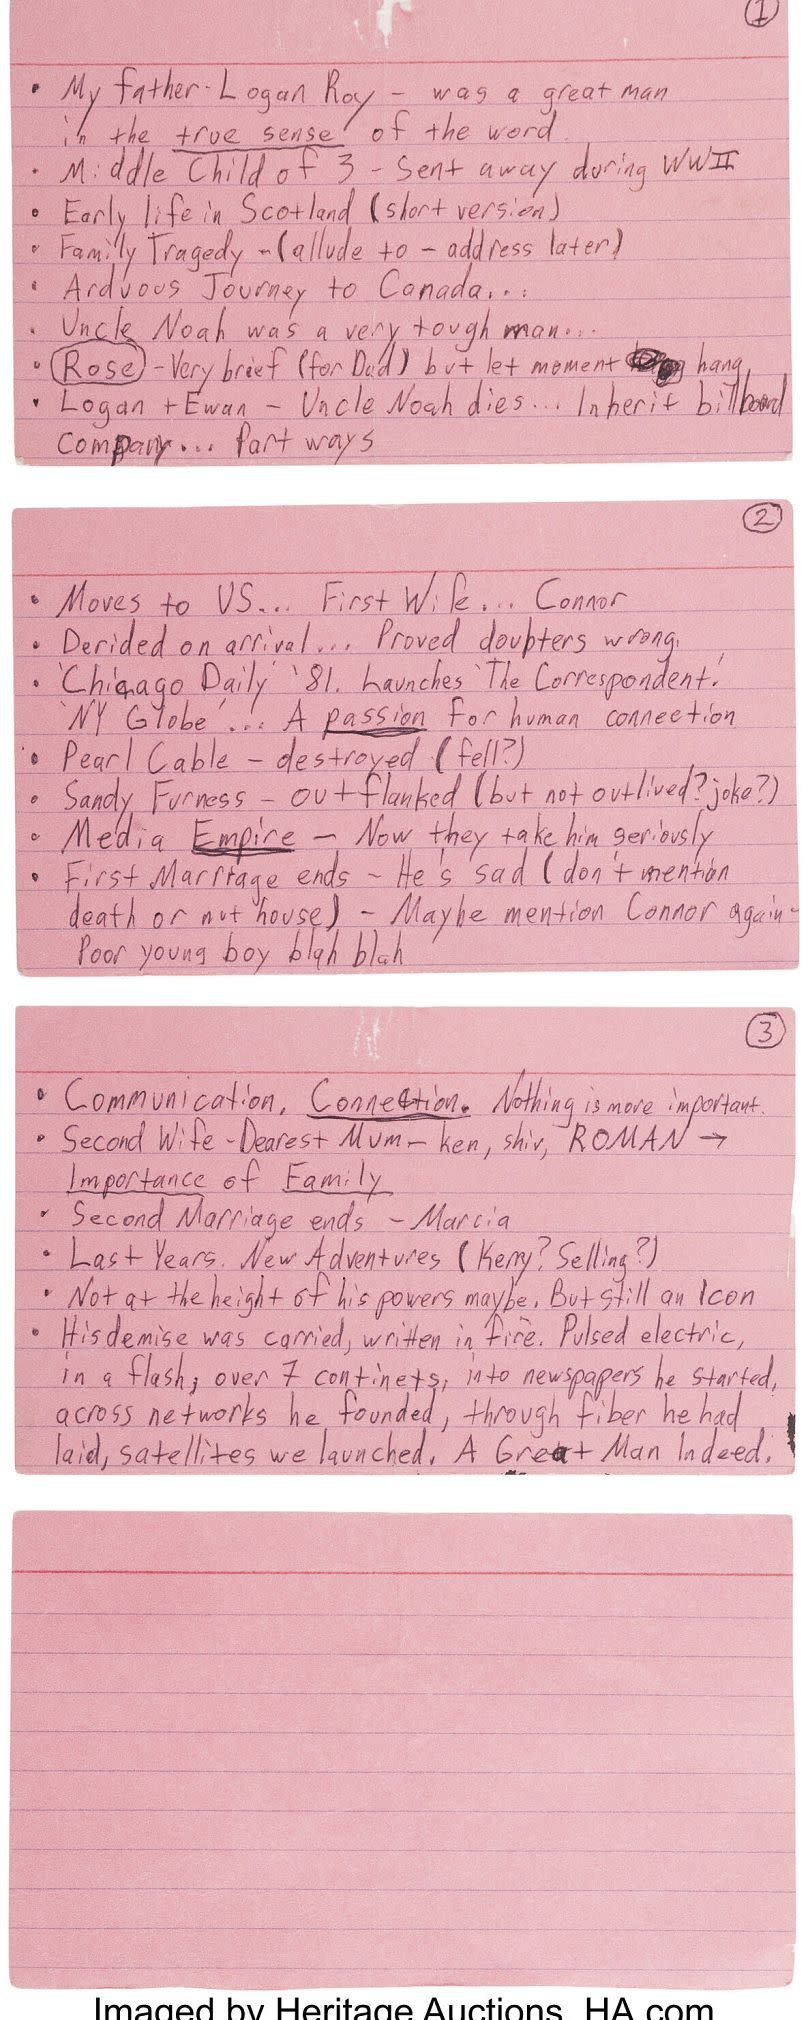 1
• My father - Logan Roy - was a great man
in the true sense of the word.
• Middle Child of 3 - Sent away during WWII
• Early life in Scotland (short version)
• Family Tragedy - (allude to - address later)
• Arduous Journey to Canada...
• Uncle Noah was a very tough man...
• Rose - Very brief (for Dad) but let moment hang
• Logan + Ewan - Uncle Noah dies... Inherit billboard
company... Part ways
2
• Moves to US... First Wife... Connor
• Derided on arrival... Proved doubters wrong.
• 'Chicago Daily' '81. Launches 'The Correspondent.'
'NY Globe'... A passion for human connection
• Pearl Cable - destroyed (fell?)
• Sandy Furness - outflanked (but not outlived? joke?)
• Media Empire - Now they take him seriously
• First Marriage ends - He's sad (don't mention
death or nut house) - Maybe mention Connor again -
Poor young boy blah blah
3
• Communication. Connection. Nothing is more important.
• Second Wife - Dearest Mum - ken, shiv, ROMAN →
Importance of Family
• Second Marriage ends - Marcia
• Last Years. New Adventures (Kerry? Selling?)
• Not at the height of his powers maybe. But still an Icon
• His demise was carried, written in fire. Pulsed electric,
in a flash, over 7 continets, into newspapers he started,
across networks he founded, through fiber he had
laid, satellites we launched. A Great Man Indeed.
Imaged by Heritage Auctions, HA.com